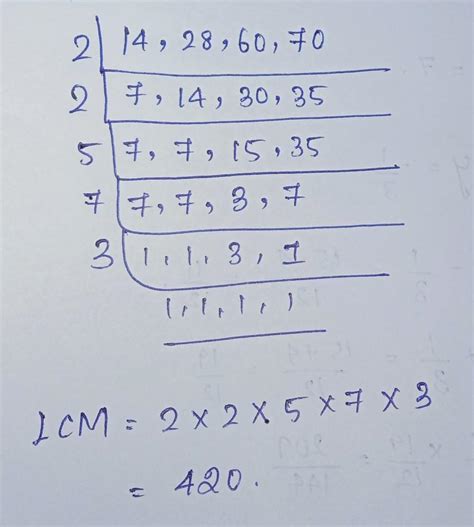 2 | 14, 28, 60, 70
2 | 7, 14, 30, 35
5 | 7, 7, 15, 35
7 | 7, 7, 3, 7
3 | 1, 1, 3, 1
1, 1, 1, 1
LCM = 2 × 2 × 5 × 7 × 3
= 420.